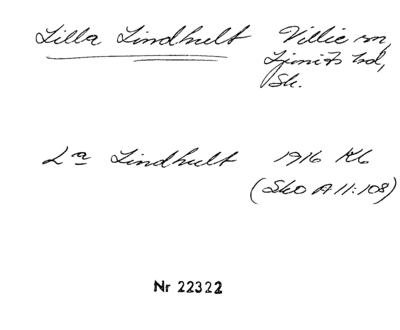 Lilla Lindhult Villie sn,
Ljunits hd,
Sk.
La Lindhult 1916 Kb
(Sko A 11:108)
Nr 22322